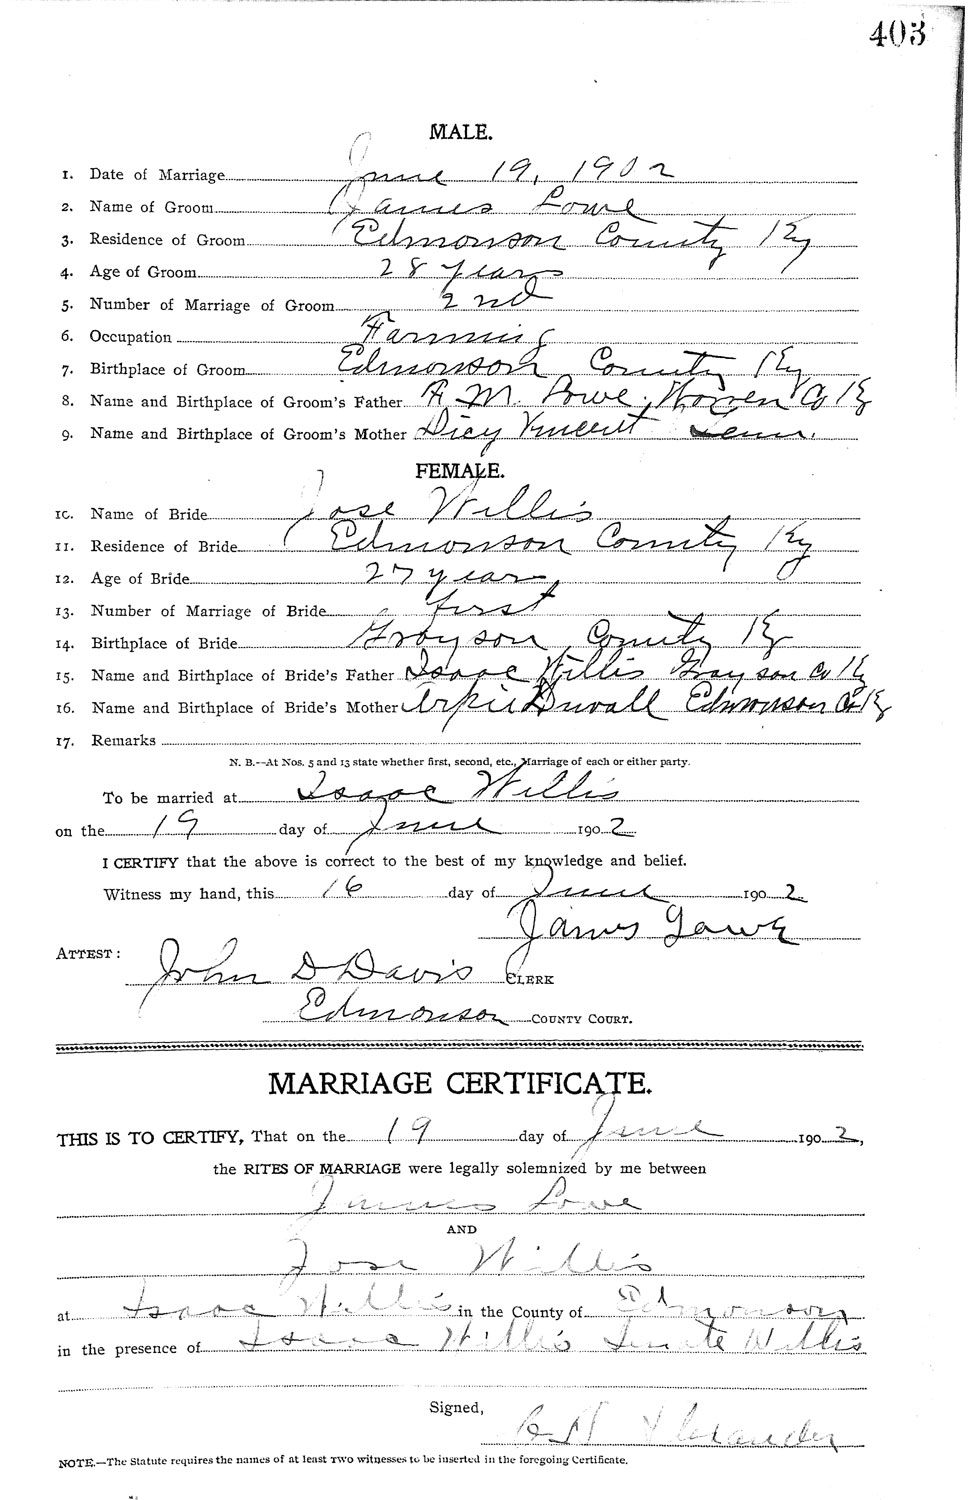 403
MALE.
1. Date of Marriage June 19, 1902
2. Name of Groom James Lowe
3. Residence of Groom Edmonson County Ky
4. Age of Groom 28 years
5. Number of Marriage of Groom 2nd
6. Occupation Farming
7. Birthplace of Groom Edmonson County Ky
8. Name and Birthplace of Groom's Father M. Lowe, Warren Co Ky
9. Name and Birthplace of Groom's Mother Dicy Vincent Tenn.
FEMALE.
10. Name of Bride Jose Willis
11. Residence of Bride Edmonson County Ky
12. Age of Bride 27 years
13. Number of Marriage of Bride first
14. Birthplace of Bride Grayson County Ky
15. Name and Birthplace of Bride's Father Isaac Willis Grayson Co Ky
16. Name and Birthplace of Bride's Mother Duvall Edmonson Co Ky
17. Remarks
N. B.--At Nos. 5 and 13 state whether first, second, etc., Marriage of each or either party.
To be married at Isaac Willis
on the 19 day of June 1902
I CERTIFY that the above is correct to the best of my knowledge and belief.
Witness my hand, this 16 day of June 1902.
James
ATTEST: John D Davis CLERK
Edmonson COUNTY COURT.
MARRIAGE CERTIFICATE.
THIS IS TO CERTIFY, That on the 19 day of June 1902,
the RITES OF MARRIAGE were legally solemnized by me between
James Lowe
AND
Jose Willis
at Isaac Willis in the County of Edmonson
in the presence of Isaac Willis Willis
Signed,
Alexander
NOTE.—The Statute requires the names of at least TWO witnesses to be inserted in the foregoing Certificate.